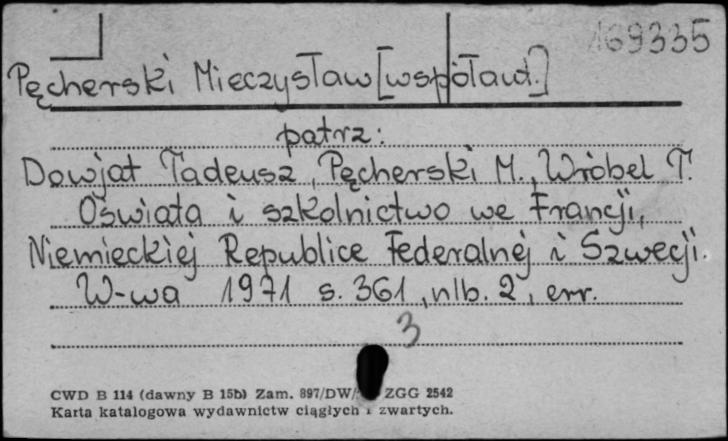 169335
Pęcherski Mieczysław [współaut.]
patrz:
Dowjat Tadeusz, Pęcherski M., Wróbel T.
Oświata i szkolnictwo we Francji,
Niemieckiej Republice Federalnej i Szwecji.
W-wa 1971 s. 361, nlb. 2, err.
3
CWD B 114 (dawny B 15b) Zam. 897/DW/ ZGG 2542
Karta katalogowa wydawnictw ciągłych i zwartych.